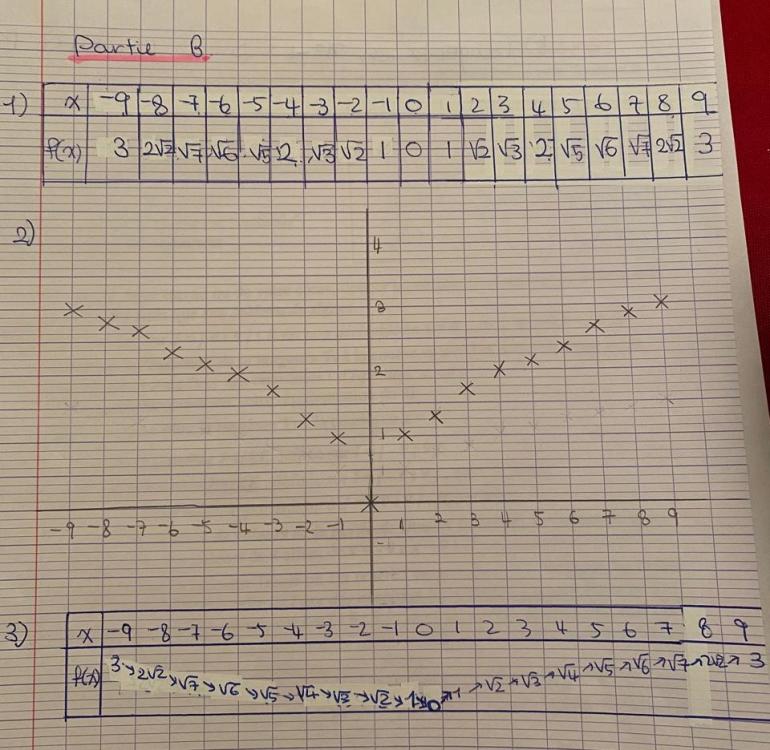 Partie B
1) x -9 -8 -7 -6 -5 -4 -3 -2 -1 0 1 2 3 4 5 6 7 8 9
f(x) 3 2√2 √7 √6 √5 2 √3 √2 1 0 1 √2 √3 2 √5 √6 √7 2√2 3
2)
4
3
2
1 1
-9 -8 -7 -6 -5 -4 -3 -2 -1 1 2 3 4 5 6 7 8 9
3) x -9 -8 -7 -6 -5 -4 -3 -2 -1 0 1 2 3 4 5 6 7 8 9
f(x) 3 ↘ 2√2 ↘ √7 ↘ √6 ↘ √5 ↘ √4 ↘ √3 ↘ √2 ↘ 1 ↘ 0 ↗ 1 ↗ √2 ↗ √3 ↗ √4 ↗ √5 ↗ √6 ↗ √7 ↗ 2√2 ↗ 3